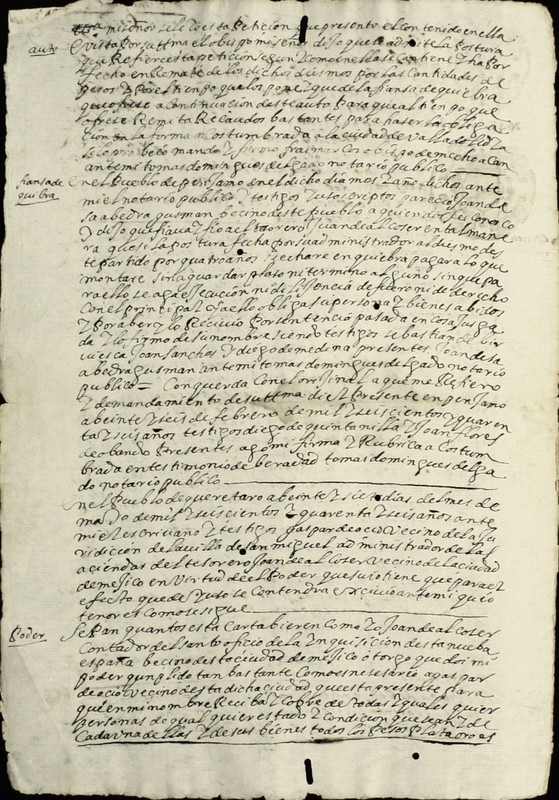 illma mi señor se leio esta Peticion que presento el contenido en ella
auto
E vista Por su illma el obispo mi señor dijo que le admite la Postura
que Refiere esta peticion segun y como en ella se contiene y ha Por
fecho en Remate de los dichos diesmos por las Cantidades de
pesos y por el tienpo que los pone y que de la fiansa de quiebra
que ofrese a continuacion deste auto Para que al tienpo que
ofrese Remita Recaudos bastantes para haser la obliga
cion en la forma acostumbrada a la ciudad de Valladolid
asi lo probeio mando y firmo fray marcos obispo de mechoacan
ante mi tomas domingues delgado notario publico
fiansa de quibra
En el Pueblo de penjamo en el dicho dia mes y año dichos ante
mi el notario publico y testigos yusoescriptos parecio Joan de
sabedra gusman becino deste pueblo a quien doi fee conosco
y dijo que fiaua y fio al tesorero Juan de alcoser en tal mane
ra que si la postura fecha por su administrador al diesmo des
te partido por quatro años se echare en quiebra pagara lo que
montare sin aguardar plaso ni termino alguno sin que pa
ra ello se aga essecucion ni dilisencia de fuero ni de derecho
con el principal y a ello obliga su persona y bienes abidos
y por aber y lo Reciuio Por sentencia pasada en cosa jusga
da y lo firmo de su nombre siendo testigos sebastian de bir
viesca Joan sanches y diego de medina presentes Joan de sa
abedra gusman ante mi tomas domingues delgado notario
publico = Conquerda con el orijinal a que me Refiero
y de mandamiento de su illma di el Presente en penjamo
a beinte y seis de febrero de mil y seiscientos y quaren
ta y seis años testigos diego de quintanilla y Joan flores
de obando Presentes ago mi firma y Rubrica acostum
brada en testimonio de berdad tomas domingues delga
do notario publico
En el Pueblo de queretaro a beinte y siete dias del mes de
mayo de mil y seiscientos y quarenta y seis años ante
mi el escriuano y testigos gaspar de ocio Vecino de la Ju
risdicion de la uilla de san miguel administrador de las
aciendas del tesorero Joan de alcoser Vecino de la ciudad
de mejico en Virtud de el Poder que suio tiene que para el
efecto que de yuso se contendra exciuio ante mi cuio
tenor es como se sigue
Poder
Sepan quantos esta carta bieren como yo Joan de alcoser
Contador del santo oficio de la ynquisicion desta nueba
españa becino desta ciudad de mejico otorgo que doi mi
poder cunplido tan bastante como es nesesario a gaspar
de ocio vecino desta dicha ciudad questa presente para
que en mi nombre Reciba y cobre de todas y quales quier
personas de qual quier estado y condicion que sean y de
Cada una dellas y de sus bienes todos los pesos plata oro es